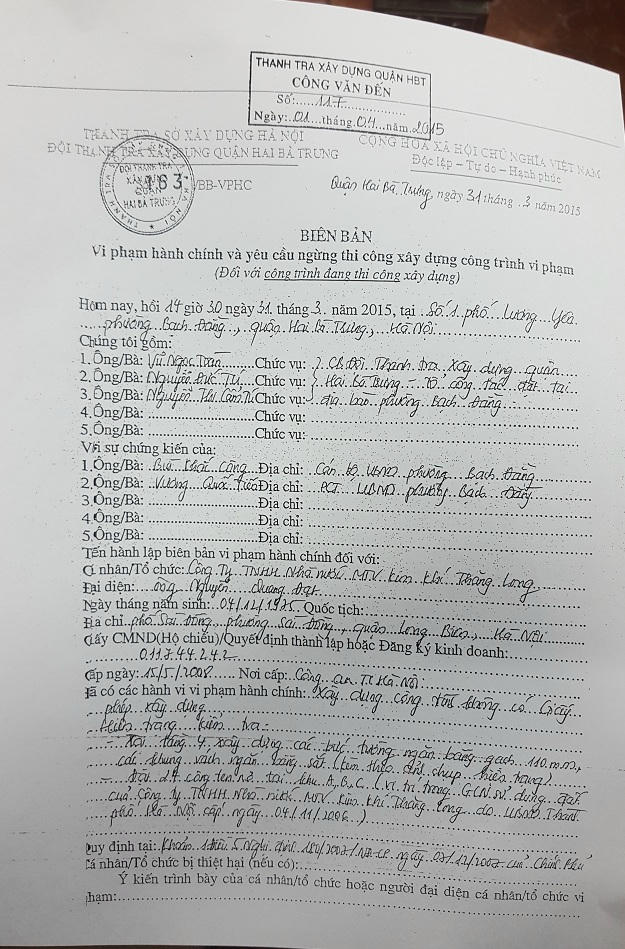 THANH TRA XÂY DỰNG QUẬN HBT
CÔNG VĂN ĐẾN
Số:......117..................
Ngày:..01...tháng.04...năm..2015
THANH TRA SỞ XÂY DỰNG HÀ NỘI
ĐỘI THANH TRA XÂY DỰNG QUẬN HAI BÀ TRƯNG
CỘNG HÒA XÃ HỘI CHỦ NGHĨA VIỆT NAM
Độc lập – Tự do – Hạnh phúc
ĐỘI THANH TRA
XÂY DỰNG
QUẬN
HAI BÀ TRƯNG
163/BB-VPHC
Quận Hai Bà Trưng, ngày 31 tháng 3 năm 2015
BIÊN BẢN
Vi phạm hành chính và yêu cầu ngừng thi công xây dựng công trình vi phạm
(Đối với công trình đang thi công xây dựng)
Hôm nay, hồi 14 giờ 30 ngày 31 tháng 3 năm 2015, tại Số 1 phố Lương Yên
phường Bạch Đằng, quận Hai Bà Trưng, Hà Nội
Chúng tôi gồm:
1. Ông/Bà: Vũ Ngọc ........Chức vụ: CB Đội Thanh tra xây dựng quận
2. Ông/Bà: Nguyễn Đức Tú...Chức vụ: Hai Bà Trưng - Tổ công tác đặt tại
3. Ông/Bà: Nguyễn Thị Cẩm Tú Chức vụ: địa bàn phường Bạch Đằng
4. Ông/Bà: ........................Chức vụ: ........................
5. Ông/Bà: ........................Chức vụ: ........................
Với sự chứng kiến của:
1. Ông/Bà: Bùi Khắc Công...Địa chỉ: Cán bộ UBND phường Bạch Đằng
2. Ông/Bà: Vương Quốc Tiến Địa chỉ: PCT UBND phường Bạch Đằng
3. Ông/Bà: ........................Địa chỉ: ........................
4. Ông/Bà: ........................Địa chỉ: ........................
5. Ông/Bà: ........................Địa chỉ: ........................
Tến hành lập biên bản vi phạm hành chính đối với:
Cá nhân/Tổ chức: Công Ty TNHH Nhà nước MTV Kim khí Thăng Long
Đại diện: ông Nguyễn Quang Đạt
Ngày tháng năm sinh: 04/12/1975 Quốc tịch:........................
Địa chỉ phố Sài Đồng, phường Sài Đồng, quận Long Biên, Hà Nội
Giấy CMND(Hộ chiếu)/Quyết định thành lập hoặc Đăng ký kinh doanh:............
011744242
Cấp ngày: 15/5/2008 ....... Nơi cấp: Công an TP Hà Nội
Đã có các hành vi vi phạm hành chính: Xây dựng công trình không có Giấy
phép xây dựng
Hiện trạng kiểm tra:
- Tại tầng 4 xây dựng các bức tường ngăn bằng gạch 110 mm,
các khung vách ngăn bằng sắt (kèm theo ảnh chụp hiện trạng)
24 công ten nơ tại khu A, B, C (vị trí trong GCN sử dụng đất
của Công ty TNHH Nhà nước MTV Kim khí Thăng Long do UBND Thành
phố Hà Nội cấp ngày 04/11/2006)
Quy định tại: Khoản 1 điều 5 Nghị định 180/2007/NĐ-CP ngày 07/12/2007 của Chính Phủ
Cá nhân/Tổ chức bị thiệt hại (nếu có):........................
Ý kiến trình bày của cá nhân/tổ chức hoặc người đại diện cá nhân/tổ chức vi
phạm:........................